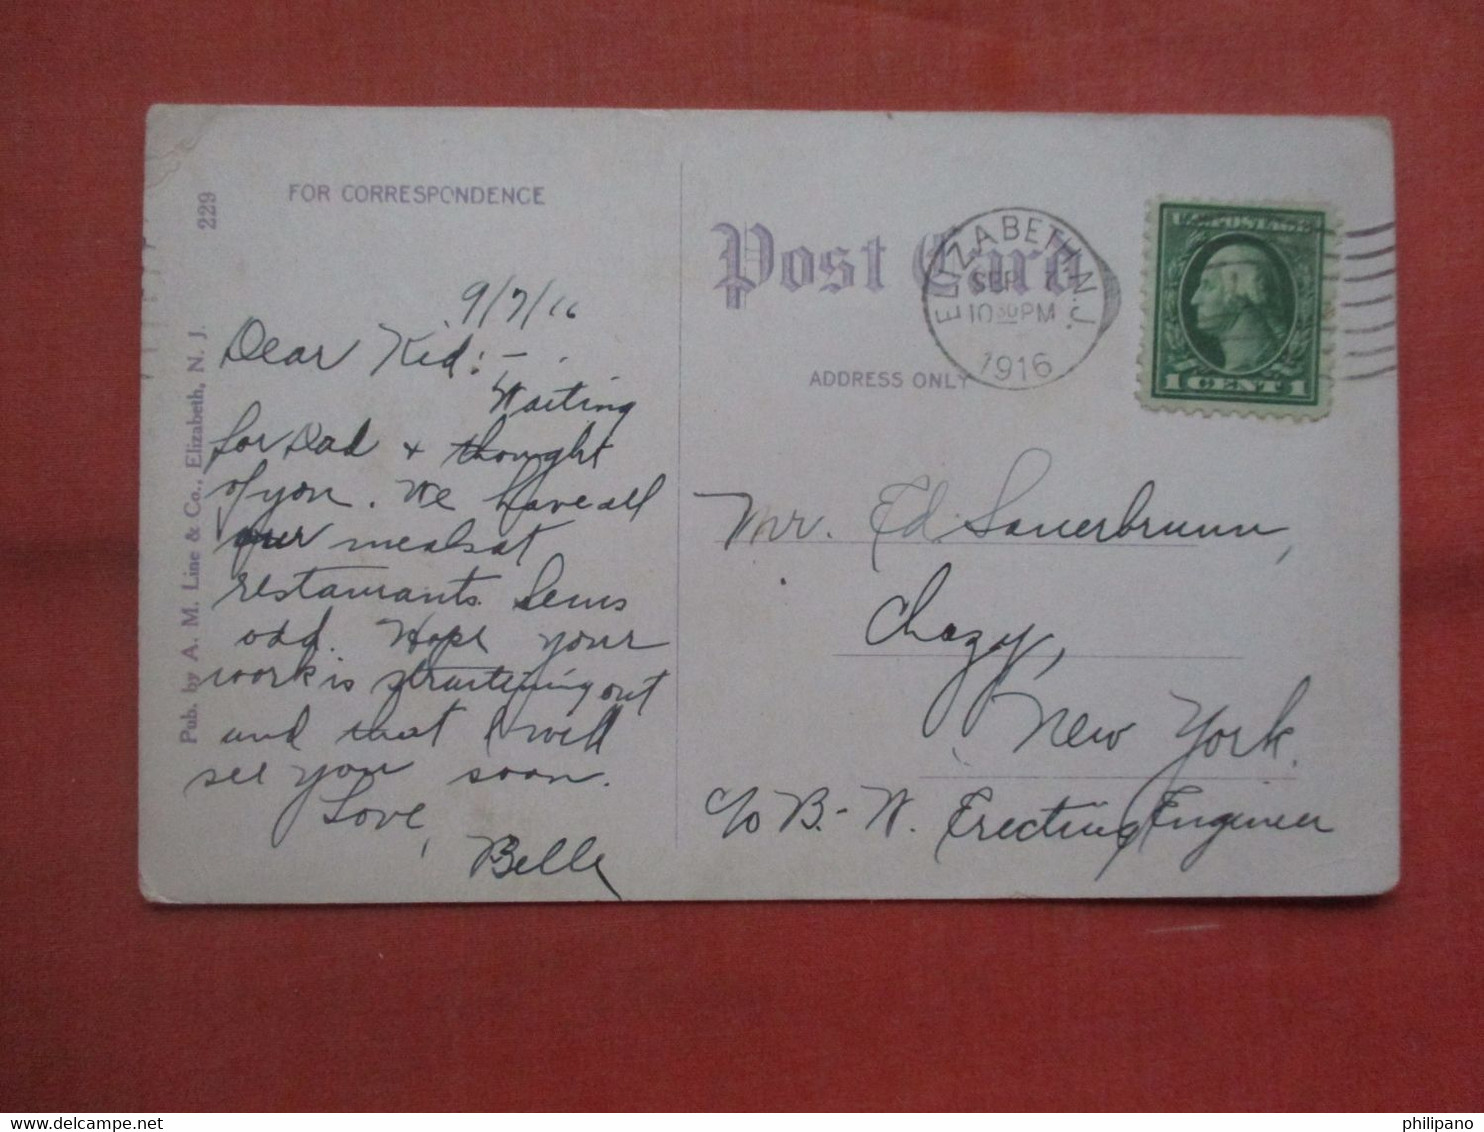 FOR CORRESPONDENCE
229
Pub. by A. M. Line & Co., Elizabeth, N. J.
9/7/16
Dear Kid:-
Waiting
for Dad & thought
of you. We have all
our meals at
restaurants. Seems
odd. Hope your
work is straightening out
and that I will
see you soon.
Love,
Belle
Post Card
ADDRESS ONLY
ELIZABETH N.J.
SEP 7
10 30 PM
1916
U.S. POSTAGE
1 CENT 1
Mr. Ed. Sauerbrunn,
Chazy,
New York.
c/o B.-W. Erecting Engineer
philipano
delcampe.net